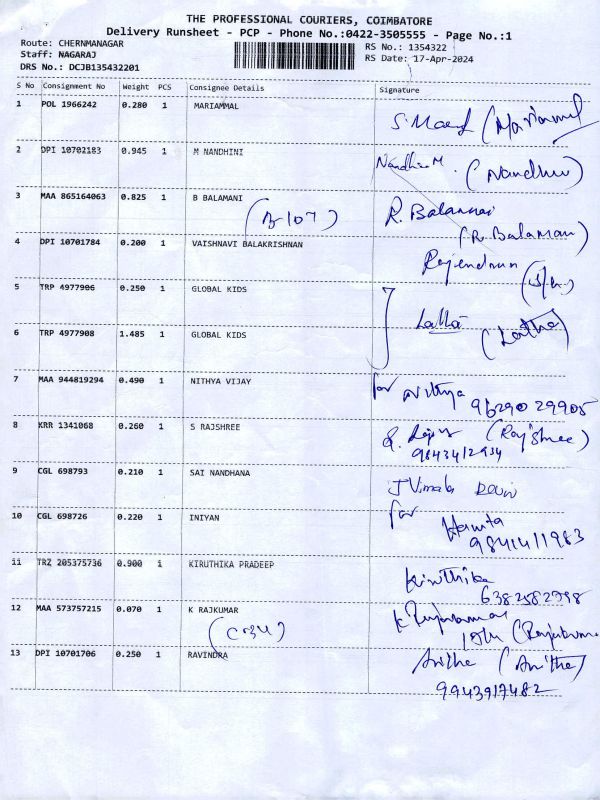 THE PROFESSIONAL COURIERS, COIMBATORE
Delivery Runsheet - PCP - Phone No.:0422-3505555 - Page No.:1
Route: CHERNMANAGAR RS No.: 1354322
Staff: NAGARAJ RS Date: 17-Apr-2024
DRS No.: DCJB135432201
S No Consignment No Weight PCS Consignee Details Signature
1 POL 1966242 0.280 1 MARIAMMAL
2 DPI 10702183 0.945 1 M NANDHINI
Nandhini M.
3 MAA 865164063 0.825 1 B BALAMANI
(B-107) R. Balamani
(R. Balamani)
4 DPI 10701784 0.200 1 VAISHNAVI BALAKRISHNAN
Rajendran
5 TRP 4977906 0.250 1 GLOBAL KIDS
Latha
(Latha)
6 TRP 4977908 1.485 1 GLOBAL KIDS
7 MAA 944819294 0.490 1 NITHYA VIJAY
for Nithya
96290 29905
8 KRR 1341068 0.260 1 S RAJSHREE
(Rajshree)
9843412934
9 CGL 698793 0.210 1 SAI NANDHANA
J Vimala Devi
10 CGL 698726 0.220 1 INIYAN
for
9841411983
11 TRZ 205375736 0.900 1 KIRUTHIKA PRADEEP
Kiruthika
6382582798
12 MAA 573757215 0.070 1 K RAJKUMAR
13 DPI 10701706 0.250 1 RAVINDRA
Anitha (Anitha)
9943917482